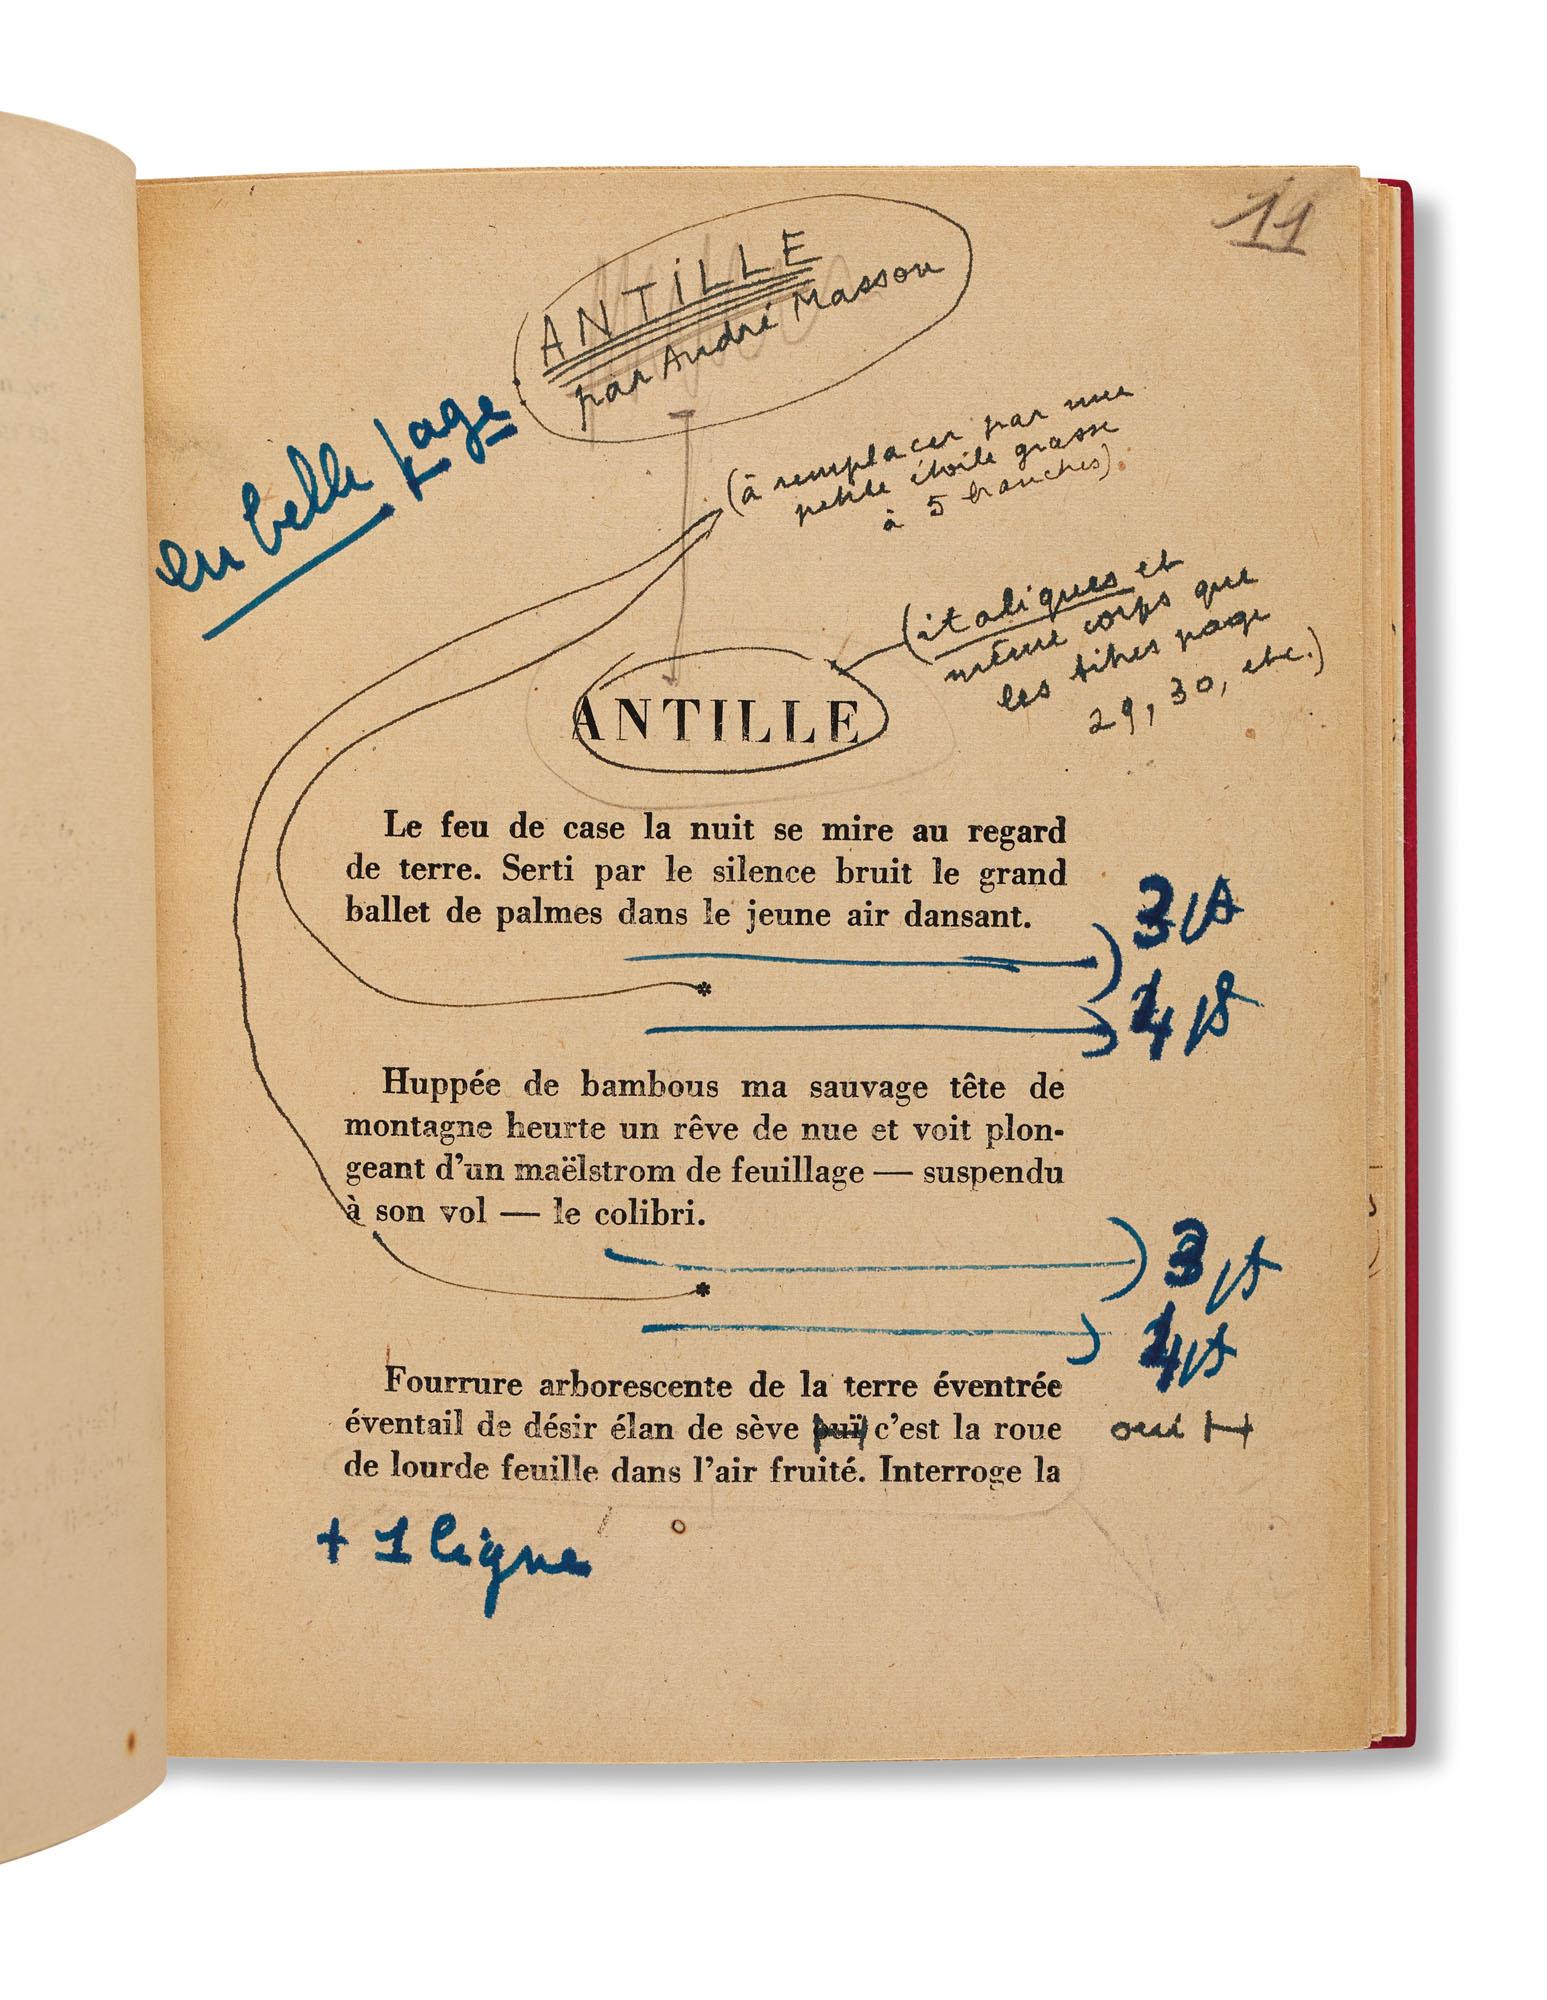 11
ANTiLLE
par André Masson
en belle page
(à remplacer par une
petite étoile grasse
à 5 branches)
(italiques et
même corps que
les titres page
29, 30, etc.)
ANTILLE
Le feu de case la nuit se mire au regard
de terre. Serti par le silence bruit le grand
ballet de palmes dans le jeune air dansant.
3 pts
*
4 pts
Huppée de bambous ma sauvage tête de
montagne heurte un rêve de nue et voit plon-
geant d'un maëlstrom de feuillage — suspendu
à son vol — le colibri.
3 pts
*
4 pts
Fourrure arborescente de la terre éventrée
éventail de désir élan de sève ouï c'est la roue
oui
de lourde feuille dans l'air fruité. Interroge la
+ 1 ligne